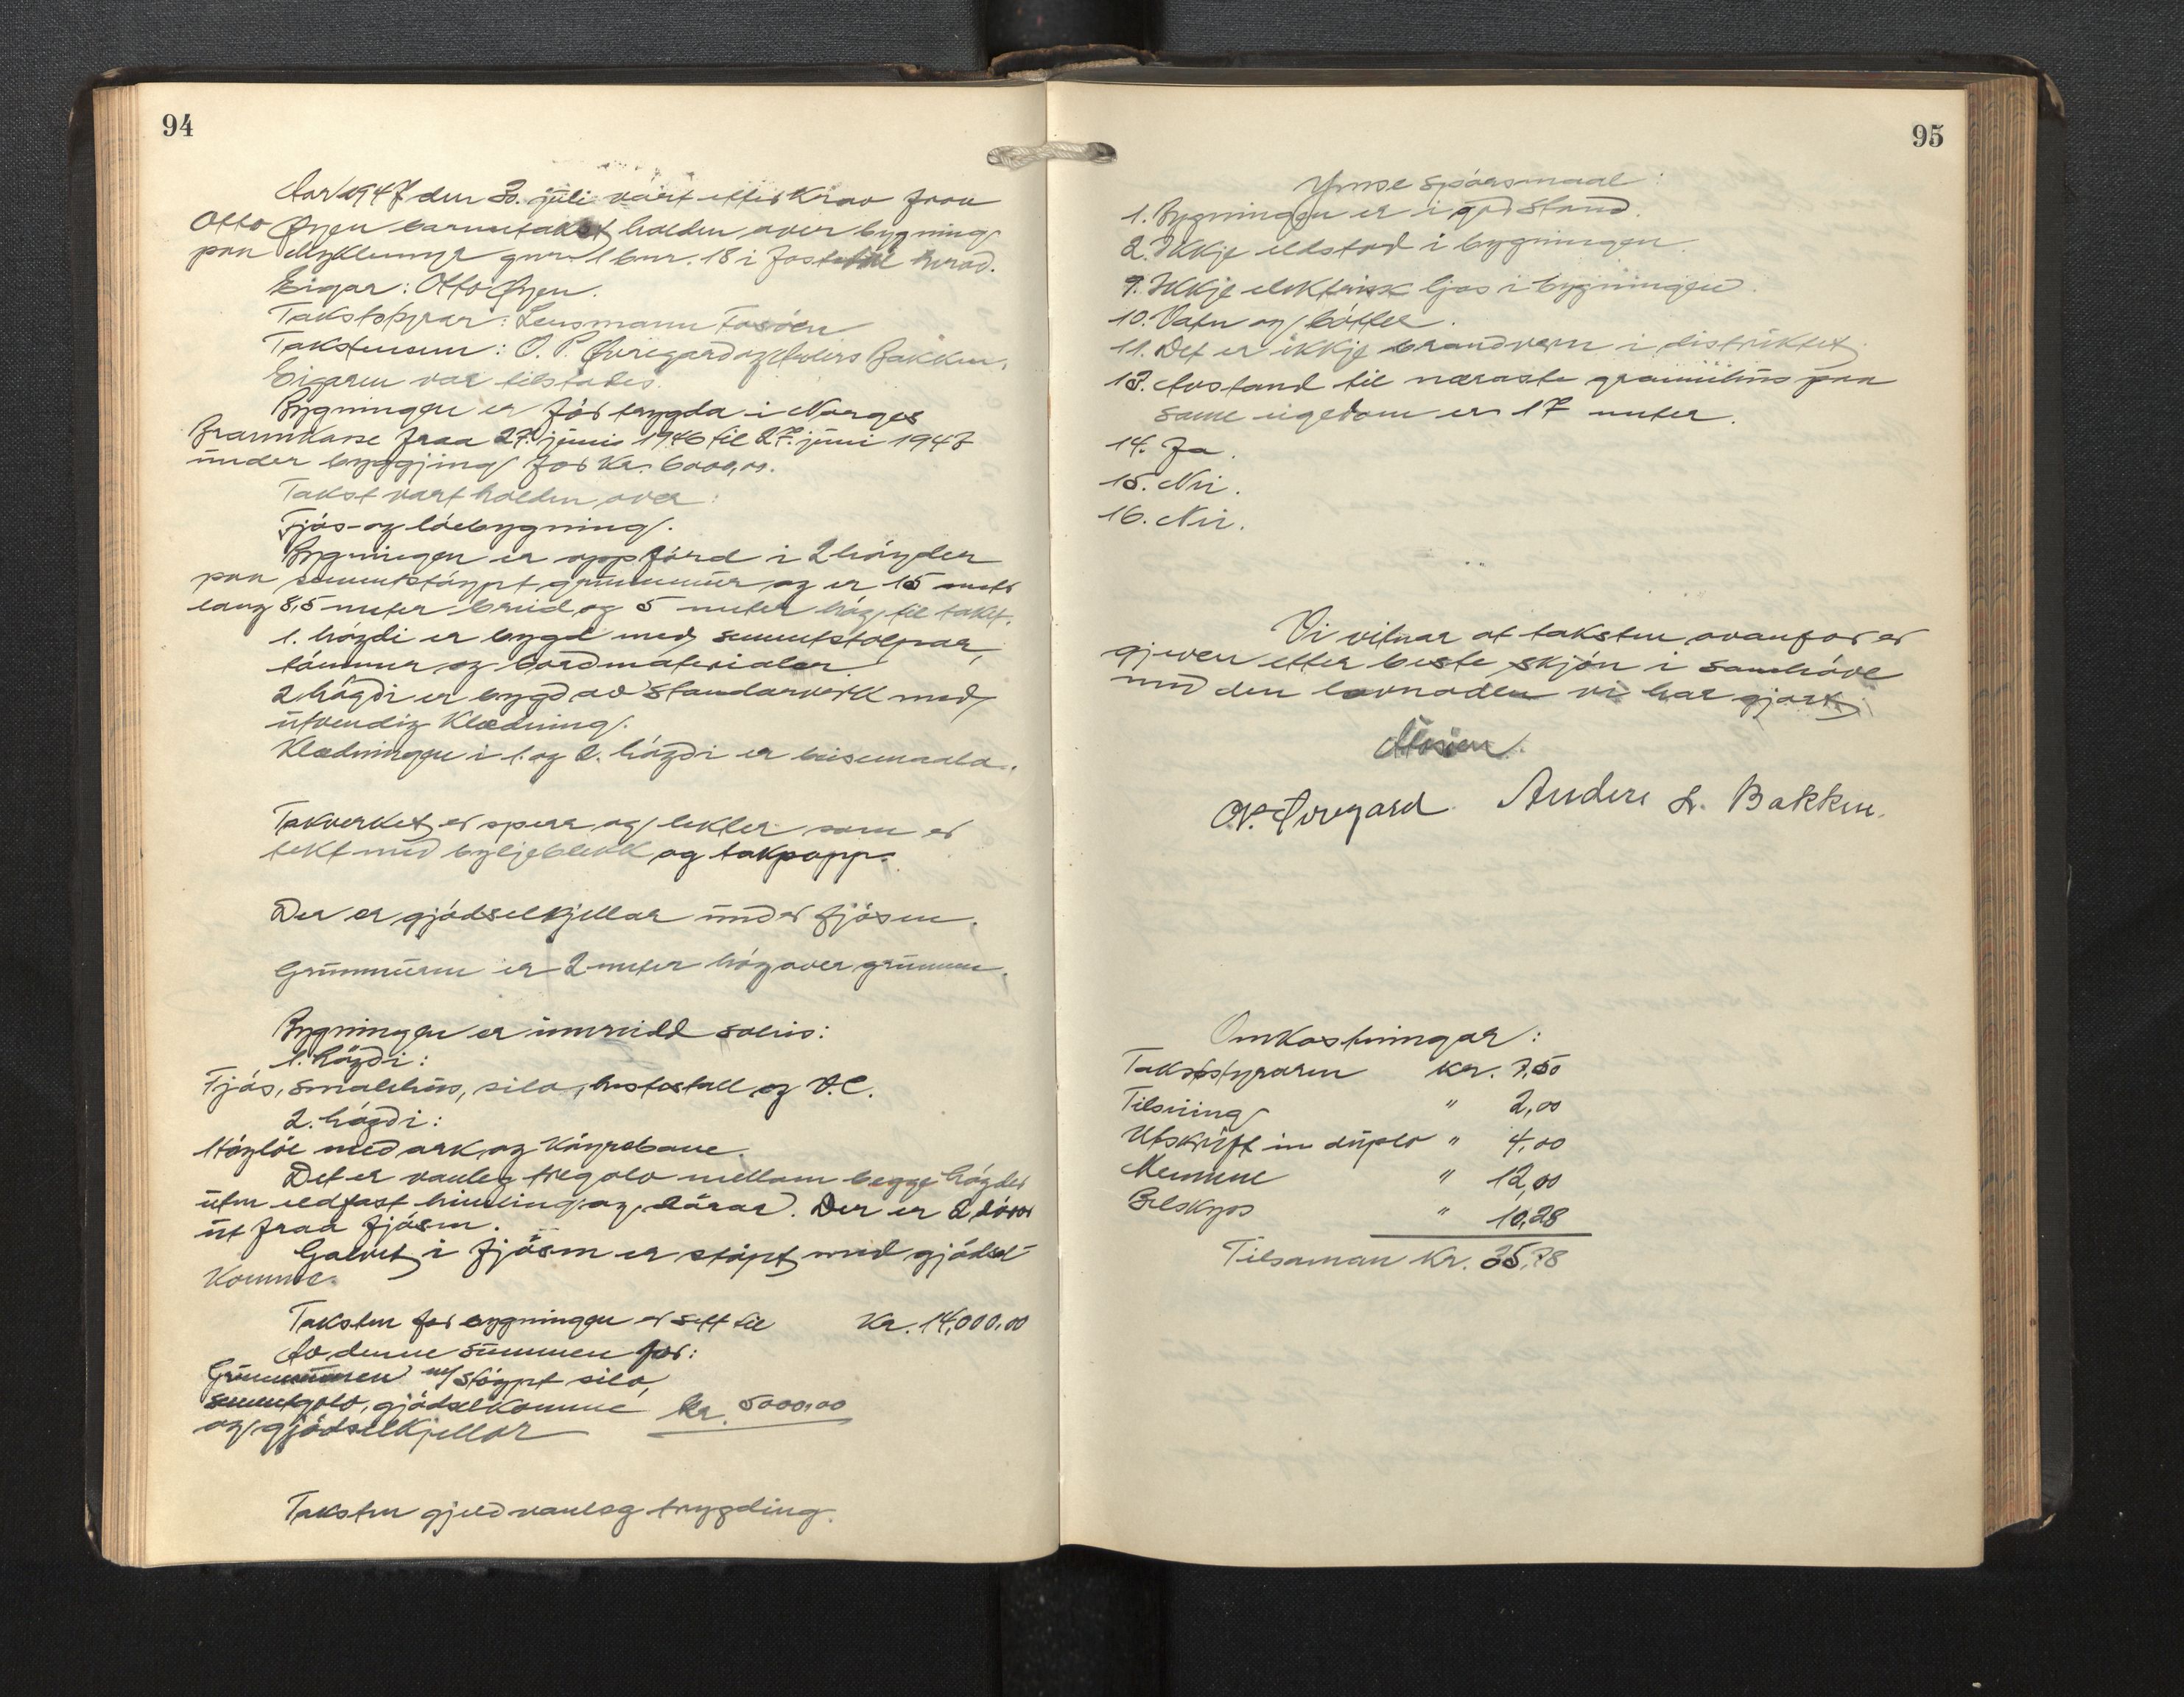 94
Aar 1947 den 30. juli vart etter krav fraa
Otto Øyen branntakst halden over bygning
paa Myklemyr gnr 1 bnr. 18 i Jostedal herad.
Eigar: Otto Øyen.
Takststyrar: Lensmann Fosøen
Takstmenn: O. P. Øvregard og Anders Bakken.
Eigaren var tilstades.
Bygningen er før trygda i Norges
Brannkasse fraa 27. juni 1946 til 27. juni 1947
under byggjing for kr. 6000,00.
Takst vart halden over:
Fjøs- og løebygning.
Bygningen er oppførd i 2 høgder
paa sementstøypt grunnmur og er 15 meter
lang 8,5 meter breid og 5 meter høg til taket.
1. høgdi er bygd med sementstolpar,
tømmer og bordmaterialer.
2. høgdi er bygd av standarverk med
utvendig klædning.
Klædningen i 1. og 2. høgdi er beisemaala.
Takverket er sperr og lekter som er
tekt med bylgjeblekk og takpapp.
Der er gjødselkjellar under fjøsen.
Grunnmuren er 2 meter høg over grunnen.
Bygningen er innreidd soleis:
1. høgdi:
Fjøs, smalehus, silo, hestestall og V.C.
2. høgdi:
Høyløe med ark og køyrebane.
Det er vanleg tregolv mellom begge høgder
uten eldfast himling og dører. Der er 2 dører
ut fraa fjøsen.
Golvet i fjøsen er støpt med gjødsel-
komme.
Taksten for bygningen er sett til Kr. 14,000.00
Av denne summen for:
Grunnmuren m/ støypt silo,
sementgolv, gjødselkomme kr. 5000,00
og gjødselkjellar
Taksten gjeld vanleg trygding.
95
Ymse spørsmaal:
1. Bygningen er i god stand.
2. Ikkje eldstad i bygningen.
9. Ikkje elektrisk ljos i bygningen.
10. Vatn og bøtter.
11. Det er ikkje brandvern i distriktet.
13. Avstand til næraste grannehus paa
same eigedom er 17 meter.
14. Ja.
15. Nei.
16. Nei.
Vi vitnar at taksten ovanfor er
gjeven etter beste skjøn i samhøve
med den lovnaden vi har gjort.
O.P. Øvregard. Anders L. Bakken.
Omkostningar:
Takststyraren kr. 7,50
Tilsuing " 2,00
Utskrift in duplo " 4,00
Mennene " 12,00
Bilskyss " 10,28
Tilsaman kr. 35,78